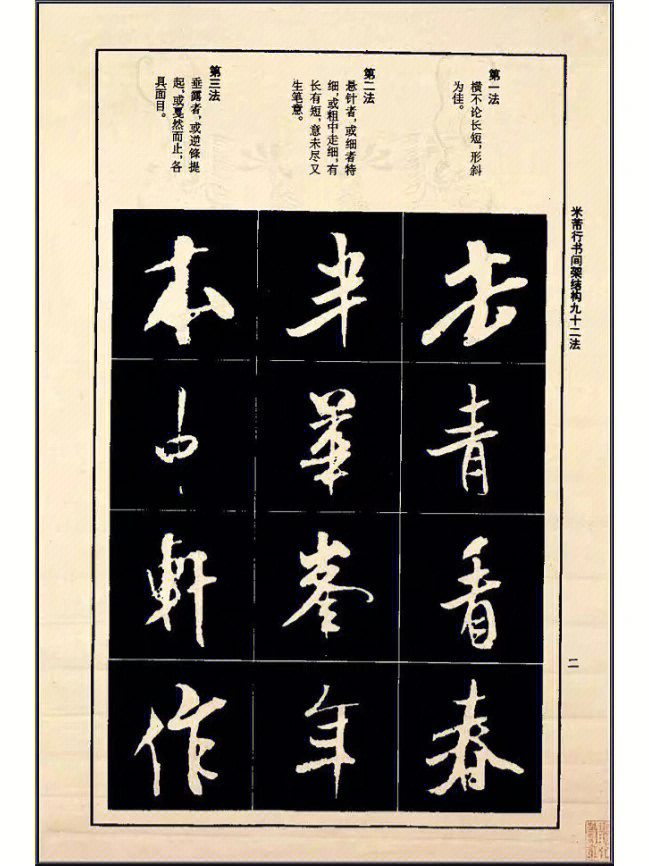 米芾行书间架结构九十二法
第一法
横不论长短，形斜
为佳。
青
看
春
第二法
悬针者，或细者特
细，或粗中走细，有
长有短，意未尽又
生笔意。
半
華
峯
年
第三法
垂露者，或逆條提
起、或戛然而止，各
具面目。
本
中
軒
作
二